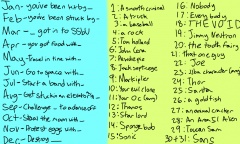 Jan- you've been kidnapped by...
Feb- you've been stuck by...
Mar- ... got in to SSBU
Apr- you got food with...
May- Travel in time with...
Jun- Go to space with...
Jul- Start a band with...
Aug- Get stuck in an elevator...
Sep- Challenge ... to a dance off
Oct- Steal the moon with...
Nov- Protest eggs with...
Dec- Destroy ...
1. A smooth criminal
2. A truck
3. a baseball
4. a rock
5. Tom holland
6. John Cena
7. Pewdiepie
8. Jack septic eye
9. Markiplier
10. Your evil clone
11. Your OC (any)
12. Thanos
13. Star lord
14. Sponge bob
15. Sonic
16. Nobody
17. Every body
18. THE VOID
19. Jimmy Neutron
20. the tooth fairy
21. That one guy
22. Joe
23.
24. Thor
25. Santa
26. a goldfish
27. an annual
28. An Army of Alien
29. Toucan Sam
30 + 31: Sans